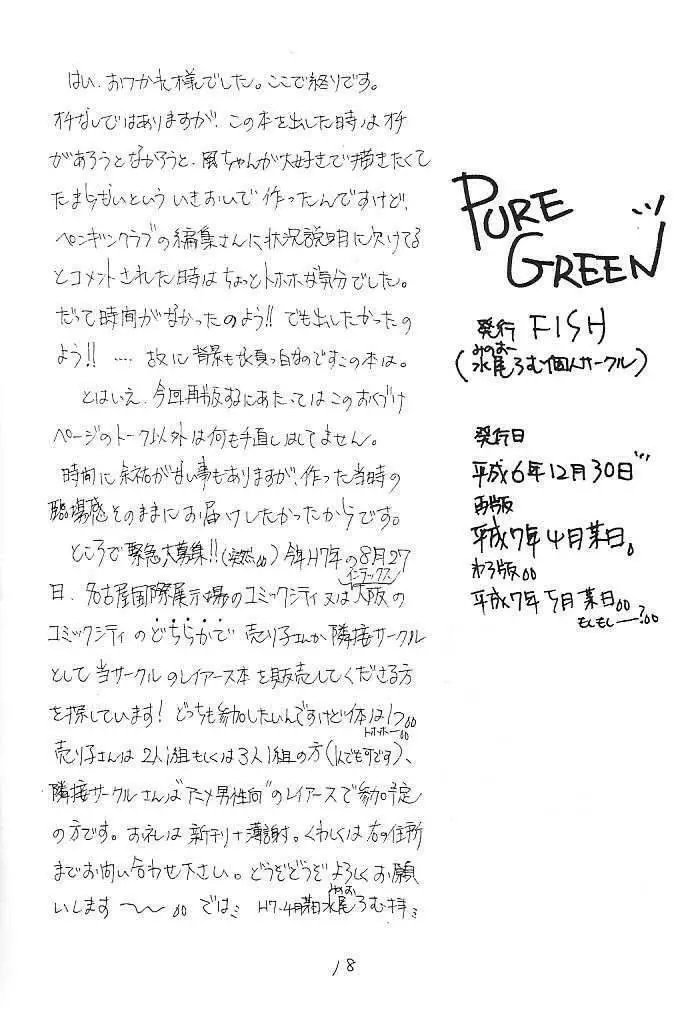 はい、おつかれ様でした。ここで終りです。
オチなしではありますが、この本を出した時はオチ
があろうとなかろうと、風ちゃんが大好きで描きたくて
たまらないといういきおいで作ったんですけど、
ペンギンクラブの編集さんに状況説明に欠けてる
とコメントされた時はちょっとトホホな気分でした。
だって時間がなかったのよう!! でも出したかったの
よう!! …. 故に背景も真っ白なのですこの本は。
とはいえ、今回再版するにあたってはこのおくづけ
ページのトーク以外は何も手直しはしてません。
時間に余裕が甘い事もありますが、作った当時の
臨場感そのままにお届けしたかったからです。
ところで緊急大募集!!(突然。。) 今年H7年の8月27
日、名古屋国際展示場のコミックシティ又は大阪の
インテックス
コミックシティのどちらかで 売り子さんか隣接サークル
として当サークルのレイアース本を販売してくださる方
を探しています! どっちも参加したいんですけど体は1つ。。
トホホー。。
売り子さんは2人1組もしくは3人1組の方(1人でも可です)、
隣接サークルさんは"アニメ男性向"のレイアースで参加予定
の方です。お礼は新刊+薄謝。くわしくは右の住所
までお問い合わせ下さい。どうぞどうぞよろしくお願
いします〜〜。。 では H7.4月某日 水尾ろむ拝
みのお
18
PURE
GREEN
発行 FISH
みのおー
(水尾ろむ個人サークル)
発行日
平成6年12月30日
再版
平成7年4月某日。
平成7年5月某日。。
もしもしー?。。